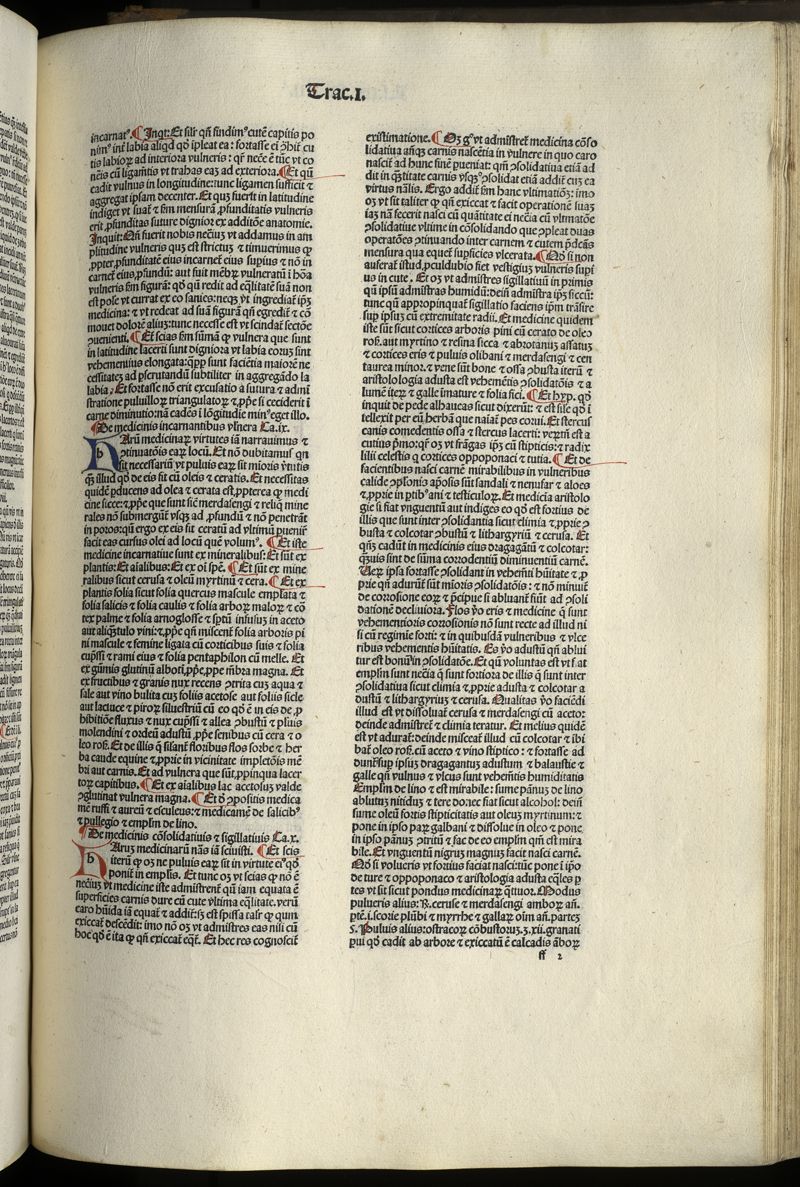 Trac.I.
incarnatꝰ. ¶ Inqt: Et silr qñ findimꝰ cutē capitis po
nimꝰ int labia aliqd qd ipleat ea: fortasse ei ꝓhibꝫ cu
tis labioꝝ ad interiora vulneris: qꝛ necēe ē tūc vt co
nēis cū ligantis vt trahas eas ad exteriora. ¶ Et qñ
cadit vulnus in longitudine: tunc ligamen sufficit ⁊
aggregat ipsam decenter. Et qñ fuerit in latitudine
indiget vt suat ⁊ fm mensurā ꝓfunditatis vulneris
erit ꝓfunditas suture dignior ex additiōe anatomie.
Inquit: Qñ fuerit nobis necīus vt addamus in am
plitudine vulneris quꝫ est strictuꝫ ⁊ timuerimus ꝙ
ꝓpter ꝓfunditatē eius incarnet eius supius ⁊ nō in
carnet eius ꝓfundū: aut fuit mēbꝝ vulneratū ī hōa
vulneris fm figurā: qd qñ redit ad eqlitatē suā non
est pole vt currat ex eo sanies: neqꝫ vt ingrediat ipꝫ
medicina: ⁊ vt redeat ad suā figurā qñ egredit ⁊ cō
mouet dolorē alius: tunc necesse est vt scindat sectōe
ꝯuenienti. ¶ Et scias fm summā ꝙ vulnera que sunt
in latitudine lacerti sunt digniora vt labia eoruꝫ sint
vehementius elongata: qꝓp sunt faciētia maiorē ne
cessitatē ad pscrutandū subtiliter in aggregādo la
labia. Et fortasse nō erit excusatio a sutura ⁊ admi
stratione puluilloꝝ triangulatoꝝ ⁊ ꝓpe si ceciderit ī
carne diminutio: nā cadēs ī lōgitudie minꝰ eget illo.
¶ De medicinis incarnantibus vlnera Ca.ix.
h Arū medicinaꝝ virtutes iā narrauimus ⁊
ꝯtinuatōis eaꝝ locū. Et nō dubitamus qn
sit necessariū vt puluis eaꝝ sit mioris vtutis
qꝫ illud qd de eis fit cū oleis ⁊ ceratis. Et necessitas
quidē ꝓducens ad olea ⁊ cerata est, ꝓpterea ꝙ medi
cine sicce: ⁊ ꝓpe que sunt sic merdasengi ⁊ reliq mine
rales nō submergunt vsqꝫ ad ꝓfundū ⁊ nō penetrāt
in poros: qñ ergo ex eis fit ceratū ad vltimū puenit
facit eas cursus olei ad locū que volumꝰ. ¶ Et iste
medicine incarnatiue sunt ex mineralibus: Et sūt ex
plantis: Et aialibus: Et ex oi spē. ¶ Et sūt ex mine
ralibus sicut cerusa ⁊ oleū myrtinū ⁊ cera. ¶ Et ex
plantis folia sicut folia quercus mascule emplata ⁊
folia salicis ⁊ folia caulis ⁊ folia arboꝝ maloꝝ ⁊ cō
tex palme ⁊ folia arnoglosse ⁊ sptū infusus in aceto
aut aliqtulo vini: ⁊ ꝓpe qñ miscent folia arboris pi
ni mascule ⁊ femine ligata cū corticibus suis ⁊ folia
cupssi ⁊ rami eius ⁊ folia pentaphilon cū melle. Et
ex gūmis glutinū alboti, ꝓpe, ꝓpe mbra magna. Et
ex fructibus ⁊ granis nux recens ꝯtrita cuꝫ aqua ⁊
sale aut vino bulita cuꝫ foliis acetose aut foliis sicle
aut lactuce ⁊ piroꝝ siluestriū cū eo qd ē in eis de ꝓ
hibitiōe fluxus ⁊ nux cupssi ⁊ allea ꝯbustū ⁊ pluis
molendini ⁊ ordeū adustū ꝓpe senibus cū cera ⁊ o
leo roẜ. Et de illis q silant floribus flos sorbe ⁊ her
ba caude equine ⁊ ꝓprie in vicinitate impletōis mē
bri aut carnis. Et ad vulnera que sūt, ꝓpinqua lacer
toꝝ capitibus. ¶ Et ex aialibus lac acetosuꝫ valde
ꝯglutinat vulnera magna. ¶ Et d ꝯpositis medica
mē ruffi ⁊ aureū ⁊ esculeus: ⁊ medicamē de salicibꝰ
⁊ pullegio ⁊ emplm de lino.
¶ De medicinis cōsolidatiuis ⁊ sigillatiuis Ca.x.
h Arus medicinarū nās iā sciuisti. ¶ Et scis
iterū ꝙ oꝫ ne puluis eaꝝ sit in virtute eiꝰ qd
ponit in emplis. Et tunc oꝫ vt scias ꝙ nō ē
necīus vt medicine iste admistrent qñ iam equata ē
superficies carnis dure cū cute vltima eqlitate. verū
caro hūida iā equat ⁊ addit: sꝫ est spissa talr ꝙ qum
exiccat descēdit: imo nō oꝫ vt admistres eas nisi cū
hoc qd ē ita ꝙ qñ exiccat eqt. Et hec res cognoscit
existimatione. ¶ Oꝫ g vt admistret medicina cōso
lidatiua añqꝫ carnis nascētia in vulnere in quo caro
nascit ad hunc finē pueniat: qm ꝯsolidatiua etiā ad
dit in qtitate carnis vsqꝫ ꝯsolidat etiā addit cuꝫ ea
virtus nālis. Ergo addit fm hanc vltimatiōꝫ: imo
oꝫ vt sit taliter ꝙ qñ exiccat ⁊ facit operationē suaꝫ
iaꝫ nā fecerit nasci cū quātitate ei necīa cū vltimatōe
ꝯsolidatiue vltime in cōsolidando que ꝯpleat duas
operatōes ꝯtinuando inter carnem ⁊ cutem pdcās
mensura qua equet supficies vlcerata. ¶ Qd si non
auferat istud, ꝓculdubio fiet vestigiuꝫ vulneris supi
us in cute. Et oꝫ vt admistres sigillatiuū in primis
qñ ipsū admistras humidū: dein admistra ipꝫ siccū:
tunc qñ appropinquat sigillatio faciens ipm trāsire
sup ipsuꝫ cū extremitate radii. Et medicine quidem
iste sūt sicut cortices arboris pini cū cerato de oleo
roẜ. aut myrtino ⁊ resina sicca ⁊ abrotanuꝫ assatuꝫ
⁊ cortices eris ⁊ puluis olibani ⁊ merdasengi ⁊ cen
taurea minor. ⁊ vene sūt bone ⁊ ossa ꝯbusta iterū ⁊
aristologia adusta est vehemētis ꝯsolidatōis ⁊ a
lumē iteꝝ ⁊ galle īmature ⁊ folia fici. ¶ Et hyp. qd
inquit de pede alhaueas sicut dixerūt: ⁊ est sile qd ī
tellexit per eū herbā que naiat pes corui. Et stercus
canis comedentis ossa ⁊ stercus lacerti: veꝝtm est a
cutius pmo: qr oꝫ vt frāgas ipꝫ cū stipticis: ⁊ radix
lilii celestis q cortices oppoponaci ⁊ tutia. ¶ Et de
facientibus nasci carnē mirabilibus in vulneribus
calide ꝯplonis aposis sūt sandali ⁊ nenufar ⁊ aloes
⁊ ꝓprie in ptibꝰ ani ⁊ testiculoꝝ. Et medicīa aristolo
gie si fiat vnguentū aut indiges eo qd est fortius de
illis que sunt inter ꝯsolidantia sicut climia ⁊ ꝓprie ꝯ
busta ⁊ colcotar ꝯbustū ⁊ lithargyriū ⁊ cerusa. Et
qñꝫ cadūt in medicinis eius dragagātū ⁊ colcotar:
quis sint de sūma corrodentiū diminuentiū carnē.
Ueꝝ ipsa fortasse ꝯsolidant in vehemti hūitate ⁊ ꝓ
prie qñ adurūt sūt mioris ꝯsolidatōis: ⁊ nō minuūt
de corrosione eoꝝ ⁊ pcipue si abluunt siūt ad ꝯsoli
dationē decliuiora. Flos vo eris ⁊ medicine q sunt
vehementioris corrosionis nō sunt recte ad illud ni
si cū regimie forti: ⁊ in quibusdā vulneribus ⁊ vlce
ribus vehementis hūitatis. Es vo adustū qñ ablui
tur est bonū in ꝯsolidatōe. Et qñ voluntas est vt fiat
emplm sunt necīa q sunt fortiora de illis q sunt inter
ꝯsolidatiua sicut climia ⁊ ꝓprie adusta ⁊ colcotar a
dustū ⁊ lithargyrus ⁊ cerusa. Qualitas vo faciēdi
illud est vt dissoluat cerusa ⁊ merdasengi cū aceto:
deinde admistret ⁊ climia teratur. Et melius quidē
est vt adurat: deinde misceat illud cū colcotar ⁊ ibi
bat oleo roẜ. cū aceto ⁊ vino stiptico: ⁊ fortasse ad
dunt sup ipsuꝫ dragagantuꝫ adustum ⁊ balaustie ⁊
galle qñ vulnus ⁊ vlcus sunt vehemētis humiditatis
Emplm de lino ⁊ est mirabile: sume pānuꝫ de lino
ablutuꝫ nitiduꝫ ⁊ tere donec fiat sicut alcohol: dein
sume oleū fortis stipticitatis aut oleuꝫ myrtinum: ⁊
pone in ipso paꝝ galbani ⁊ dissolue in oleo ⁊ pone
in ipso pānuꝫ ꝯtritū ⁊ fac de eo emplm qm est mira
bile. Et vnguentū nigruꝫ magnuꝫ facit nasci carnē.
Qd si volueris vt fortius faciat nasci: tūc pone ī ipo
de ture ⁊ oppoponaco ⁊ aristologia adusta eqles p
tes vt sit sicut pondus medicinaꝝ qttuor. Modus
pulueris alius: ℞. ceruse ⁊ merdasengi amboꝝ añ.
ptē.i. scorie plūbi ⁊ myrrhe ⁊ gallaꝝ oīm añ. parteꝫ
s. Puluis alius: ostracoꝝ cōbustoruꝫ.ʒ.xii. granati
pui qd cadit ab arbore ⁊ exiccatū ē calcadis amboꝝ
ff 2